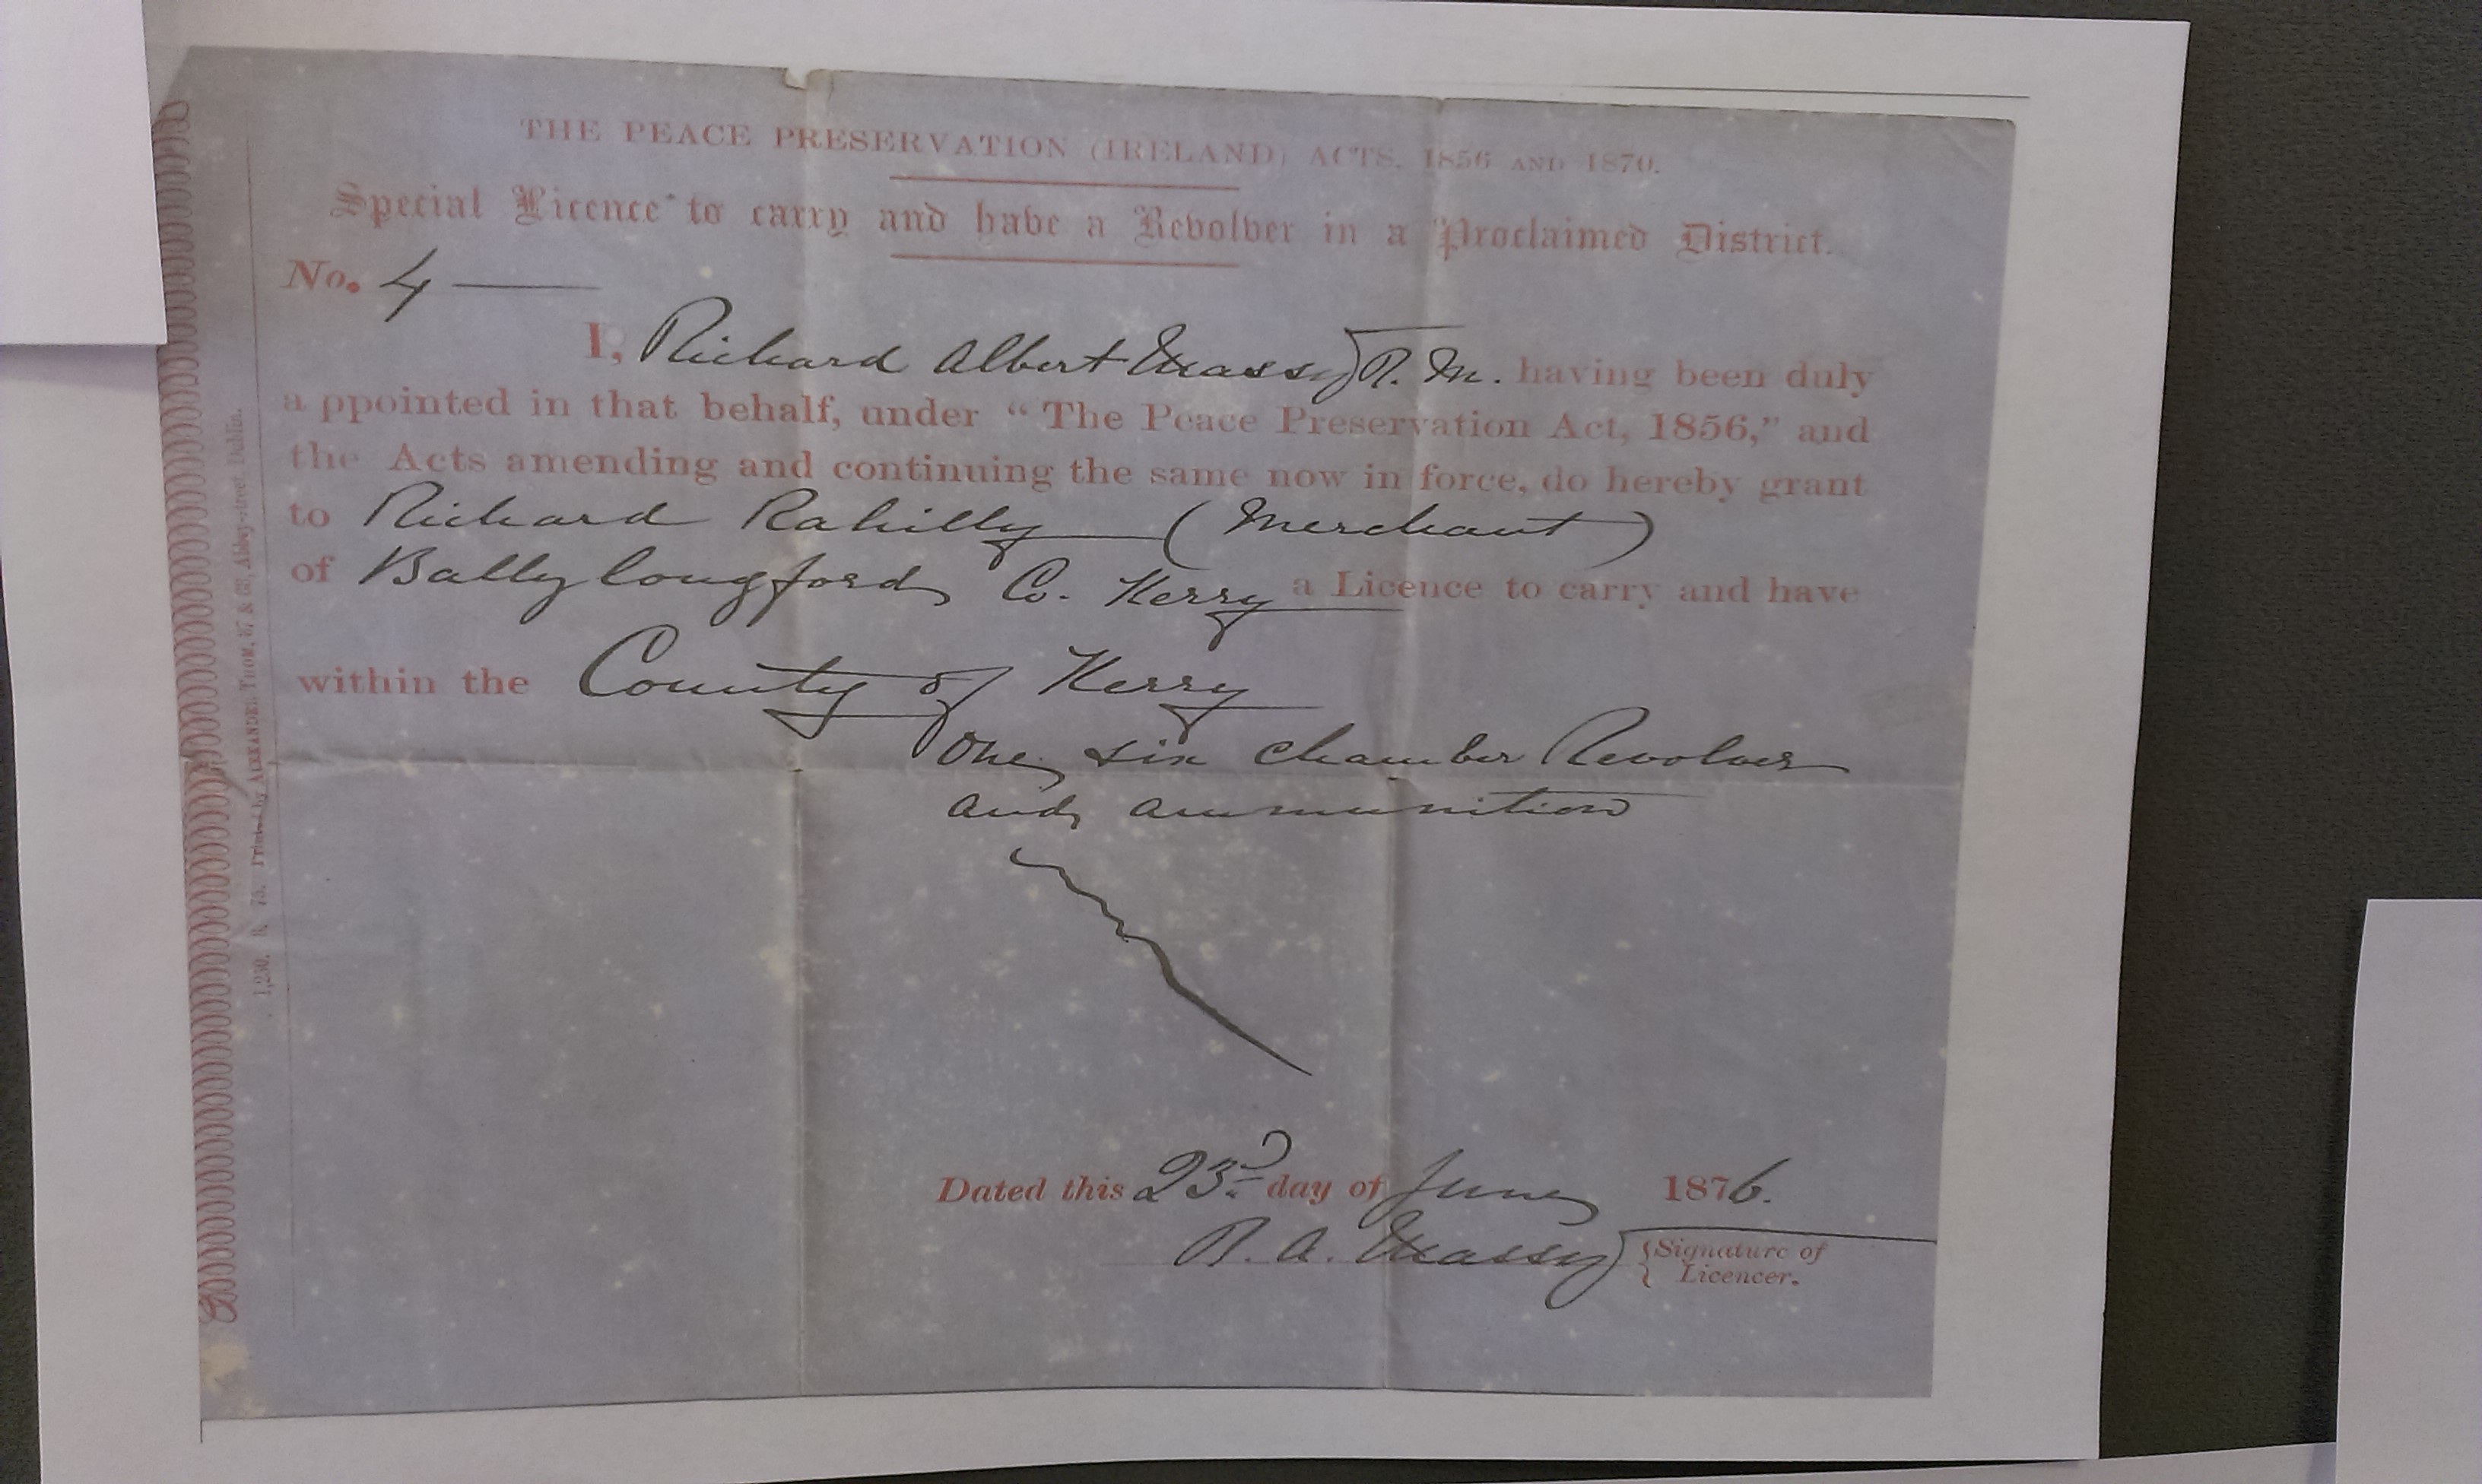 THE PEACE PRESERVATION (IRELAND) ACTS, 1856 AND 1870.
Special Licence to carry and have a Revolver in a Proclaimed District.
No. 4
I, Richard Albert Massy R.M. having been duly
appointed in that behalf, under "The Peace Preservation Act, 1856," and
the Acts amending and continuing the same now in force, do hereby grant
to Richard Rahilly (Merchant)
of Ballylongford Co. Kerry a Licence to carry and have
within the County of Kerry
One six chamber Revolver
and ammunition
Dated this 23rd day of June 1876.
R. A. Massy {Signature of
Licencer.
1,250. 75. Printed by ALEXANDER THOM, 87 & 88, Abbey-street, Dublin.